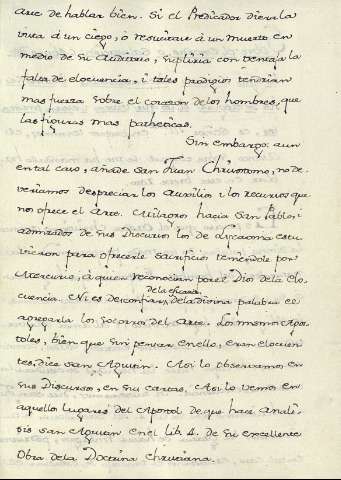 Arte de hablar bien. Si el Predicador diera la
vista à un ciego, ò resucitara à un muerto en
medio de su Auditorio, supliria con ventaja la
falta de elocuencia, i tales prodigios tendrian
mas fuerza sobre el corazon de los hombres, que
las figuras mas patheticas.
Sin embargo: aun
en tal caso, añade San Juan Chrisostomo, no de-
veriamos despreciar los Auxilios, i los recursos que
nos ofrece el Arte. Milagros hacia San Pablo;
admirados de sus Discursos los de Licaonia estu-
vieron para ofrecerle sacrificio teniendole por
Mercurio, à quien reconocian por el Dios de la elo-
de la eficacia
cuencia. Ni es desconfianza, de la divina palabra el
agregarla los socorros del Arte. Los mismos Apos-
toles, bien que sin pensar en ello, eran elocuen-
tes, dice San Agustin. Asi lo observamos en
sus Discursos, en sus cartas. Asi lo vemos en
aquellos lugares del Apostol de que hace anali-
sis San Agustin en el Lib. 4. de su excellente
Obra de la Doctrina Christiana.